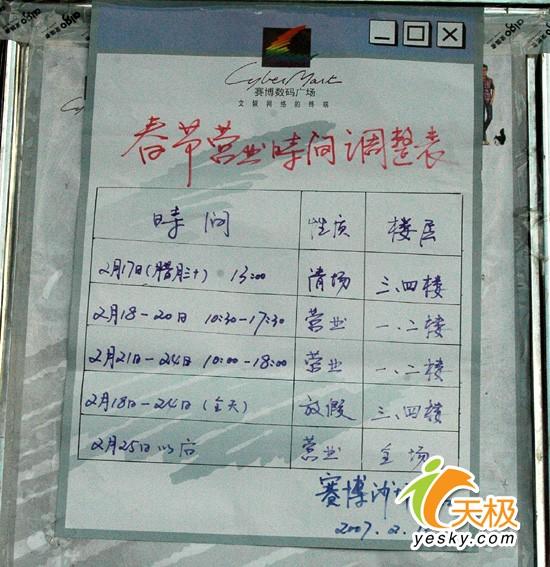 aigo
CyberMart
赛博数码广场
文娱网络的终端
春节营业时间调整表
時间 性质 楼层
2月17日(腊月三十) 15:00 清场 三、四楼
2月18-20日 10:30-17:30 营业 一、二楼
2月21-24日 10:00-18:00 营业 一、二楼
2月18日-24日(全天) 放假 三、四楼
2月25日以后 营业 全场
赛博沙
2007.2.
天极
yesky.com